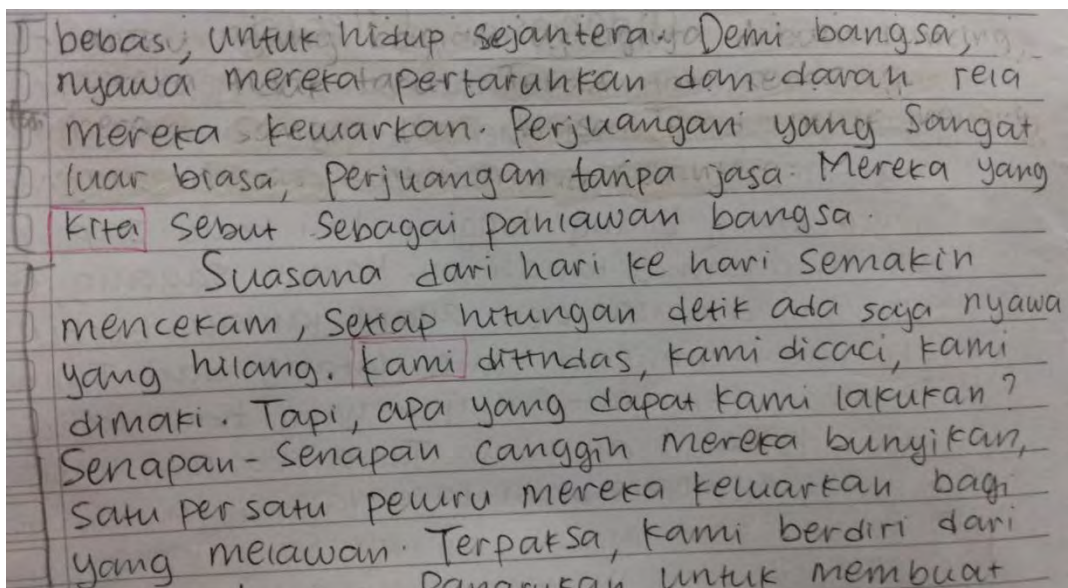 bebas, untuk hidup sejahtera. Demi bangsa,
nyawa mereka pertaruhkan dan darah rela
mereka keluarkan. Perjuangan yang Sangat
luar biasa, Perjuangan tanpa jasa. Mereka yang
kita sebut sebagai pahlawan bangsa.
Suasana dari hari ke hari semakin
mencekam, setiap hitungan detik ada saja nyawa
yang hilang. kami ditindas, kami dicaci, kami
dimaki. Tapi, apa yang dapat kami lakukan?
Senapan-senapan canggih mereka bunyikan,
satu per satu peluru mereka keluarkan bagi
yang melawan. Terpaksa, kami berdiri dari
untuk membuat